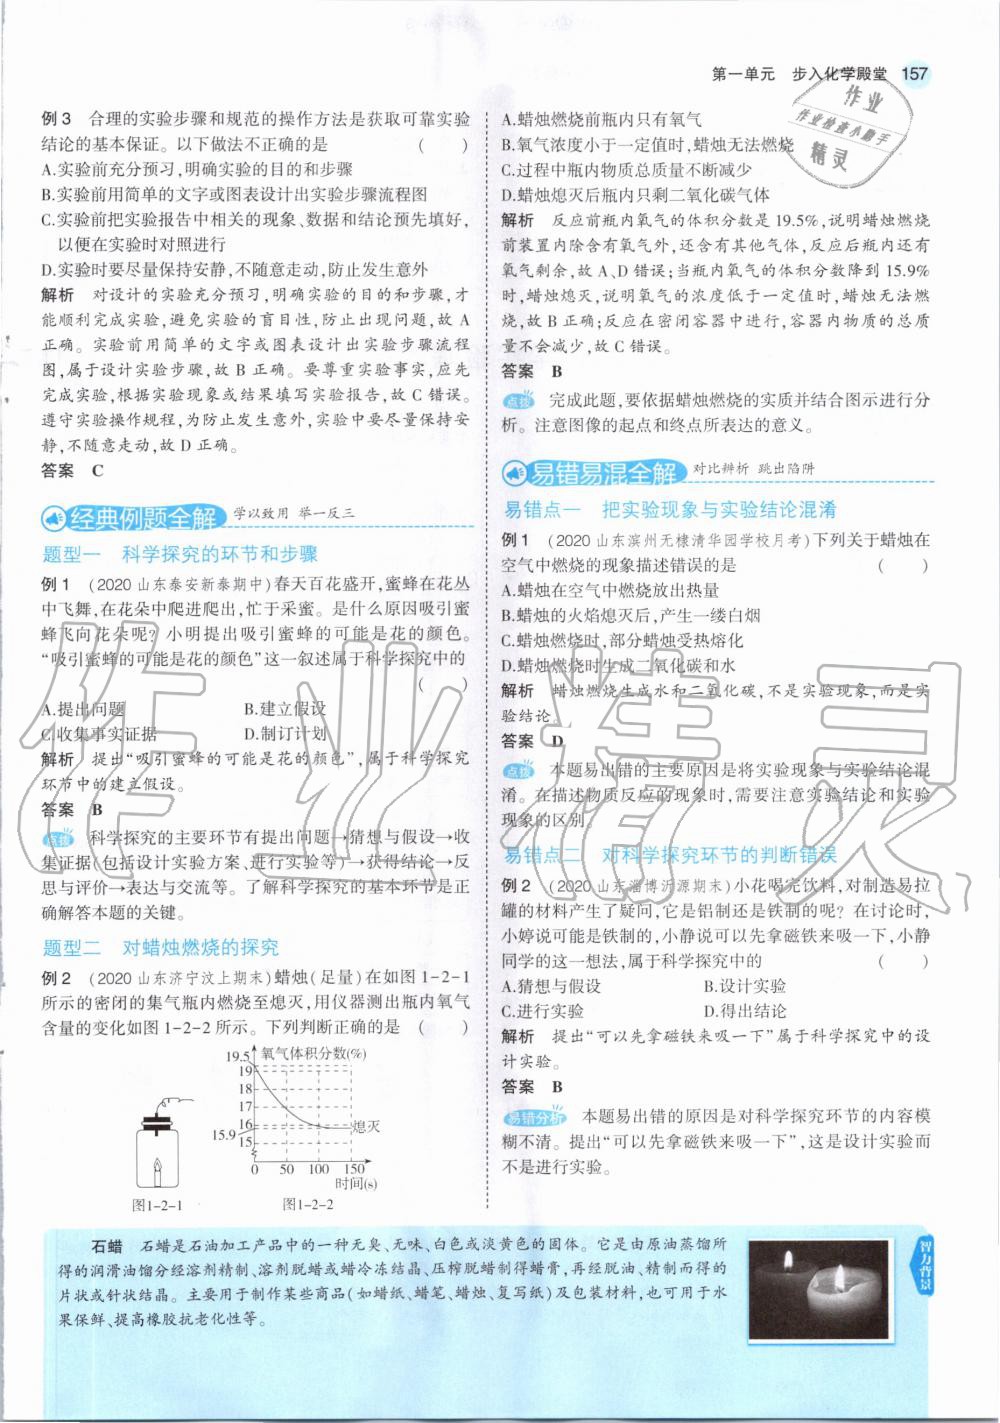 第一单元　步入化学殿堂　157
例3　合理的实验步骤和规范的操作方法是获取可靠实验
结论的基本保证。以下做法不正确的是　(　　)
A.实验前充分预习,明确实验的目的和步骤
B.实验前用简单的文字或图表设计出实验步骤流程图
C.实验前把实验报告中相关的现象、数据和结论预先填好,
以便在实验时对照进行
D.实验时要尽量保持安静,不随意走动,防止发生意外
解析　对设计的实验充分预习,明确实验的目的和步骤,才
能顺利完成实验,避免实验的盲目性,防止出现问题,故A
正确。实验前用简单的文字或图表设计出实验步骤流程
图,属于设计实验步骤,故B正确。要尊重实验事实,应先
完成实验,根据实验现象或结果填写实验报告,故C错误。
遵守实验操作规程,为防止发生意外,实验中要尽量保持安
静,不随意走动,故D正确。
答案　C
经典例题全解　学以致用　举一反三
题型一　科学探究的环节和步骤
例1　(2020山东泰安新泰期中)春天百花盛开,蜜蜂在花丛
中飞舞,在花朵中爬进爬出,忙于采蜜。是什么原因吸引蜜
蜂飞向花朵呢?小明提出吸引蜜蜂的可能是花的颜色。
“吸引蜜蜂的可能是花的颜色”这一叙述属于科学探究中的
(　　)
A.提出问题　B.建立假设
C.收集事实证据　D.制订计划
解析　提出“吸引蜜蜂的可能是花的颜色”,属于科学探究
环节中的建立假设。
答案　B
点拨　科学探究的主要环节有提出问题→猜想与假设→收
集证据(包括设计实验方案、进行实验等)→获得结论→反
思与评价→表达与交流等。了解科学探究的基本环节是正
确解答本题的关键。
题型二　对蜡烛燃烧的探究
例2　(2020山东济宁汶上期末)蜡烛(足量)在如图1-2-1
所示的密闭的集气瓶内燃烧至熄灭,用仪器测出瓶内氧气
含量的变化如图1-2-2所示。下列判断正确的是　(　　)
氧气体积分数(%)
19.5
19
18
17
16
15.9
15
熄灭
0　50　100　150
时间(s)
图1-2-1　图1-2-2
A.蜡烛燃烧前瓶内只有氧气
B.氧气浓度小于一定值时,蜡烛无法燃烧
C.过程中瓶内物质总质量不断减少
D.蜡烛熄灭后瓶内只剩二氧化碳气体
解析　反应前瓶内氧气的体积分数是19.5%,说明蜡烛燃烧
前装置内除含有氧气外,还含有其他气体,反应后瓶内还有
氧气剩余,故A、D错误;当瓶内氧气的体积分数降到15.9%
时,蜡烛熄灭,说明氧气的浓度低于一定值时,蜡烛无法燃
烧,故B正确;反应在密闭容器中进行,容器内物质的总质
量不会减少,故C错误。
答案　B
点拨　完成此题,要依据蜡烛燃烧的实质并结合图示进行分
析。注意图像的起点和终点所表达的意义。
易错易混全解　对比辨析　跳出陷阱
易错点一　把实验现象与实验结论混淆
例1　(2020山东滨州无棣清华园学校月考)下列关于蜡烛在
空气中燃烧的现象描述错误的是　(　　)
A.蜡烛在空气中燃烧放出热量
B.蜡烛的火焰熄灭后,产生一缕白烟
C.蜡烛燃烧时,部分蜡烛受热熔化
D.蜡烛燃烧时生成二氧化碳和水
解析　蜡烛燃烧生成水和二氧化碳,不是实验现象,而是实
验结论。
答案　D
点拨　本题易出错的主要原因是将实验现象与实验结论混
淆。在描述物质反应的现象时,需要注意实验结论和实验
现象的区别。
易错点二　对科学探究环节的判断错误
例2　(2020山东淄博沂源期末)小花喝完饮料,对制造易拉
罐的材料产生了疑问,它是铝制还是铁制的呢?在讨论时,
小婷说可能是铁制的,小静说可以先拿磁铁来吸一下,小静
同学的这一想法,属于科学探究中的　(　　)
A.猜想与假设　B.设计实验
C.进行实验　D.得出结论
解析　提出“可以先拿磁铁来吸一下”属于科学探究中的设
计实验。
答案　B
易错分析　本题易出错的原因是对科学探究环节的内容模
糊不清。提出“可以先拿磁铁来吸一下”,这是设计实验而
不是进行实验。
石蜡　石蜡是石油加工产品中的一种无臭、无味、白色或淡黄色的固体。它是由原油蒸馏所
得的润滑油馏分经溶剂精制、溶剂脱蜡或蜡冷冻结晶、压榨脱蜡制得蜡膏,再经脱油、精制而得的
片状或针状结晶。主要用于制作某些商品(如蜡纸、蜡笔、蜡烛、复写纸)及包装材料,也可用于水
果保鲜、提高橡胶抗老化性等。
智力背景
作业
作业检查小助手
精灵
作业精灵